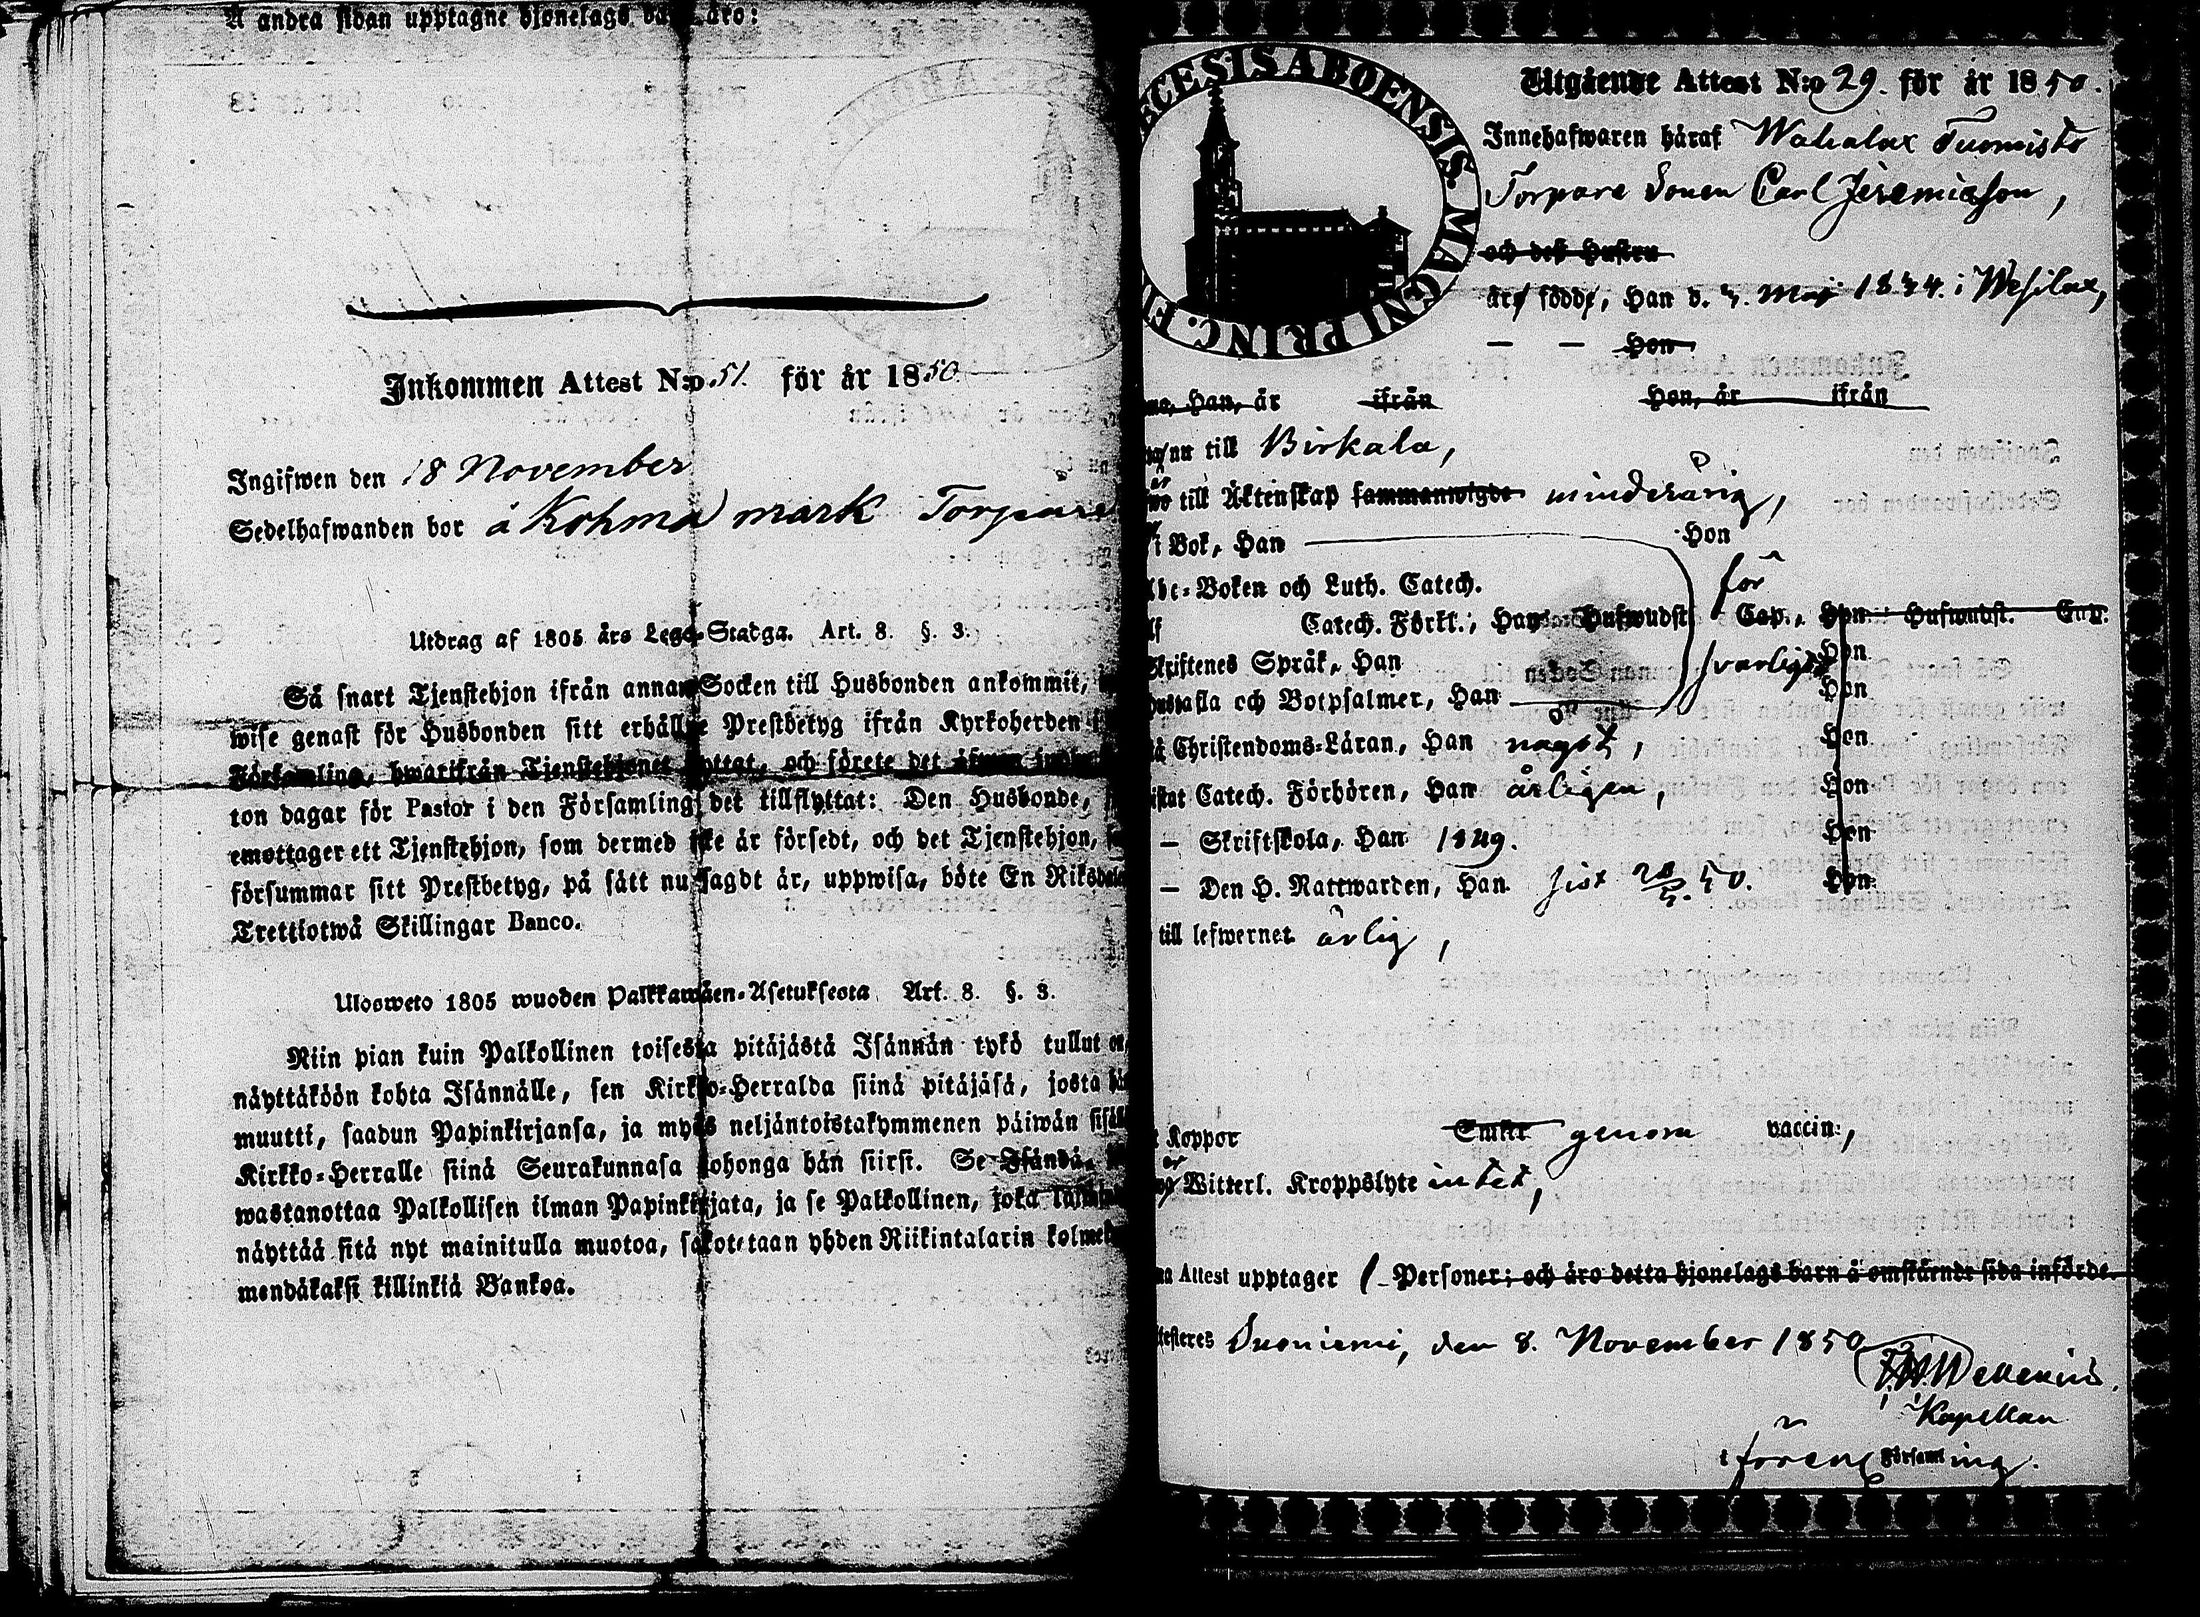 Å andra sidan upptagne hjonelags äro:
Inkommen Attest N:o 51. för år 1850.
Ingifwen den 18 November
Sedelhafwanden bor å Kohma mark Torpare
Utdrag af 1805 års Lego-Stadga. Art. 8. §. 3.
Så snart Tjenstehjon ifrån annan Socken till Husbonden ankommit,
wise genast för Husbonden sitt erhållne Prestbetyg ifrån Kyrkoherden i
Församling, hwarifrån Tjenstehjonet flyttat, och förete det äfwen
ton dagar för Pastor i den Församling det tillflyttat: Den Husbonde,
emottager ett Tjenstehjon, som dermed icke är försedt, och det Tjenstehjon,
försummar sitt Prestbetyg, på sätt nu sagdt är, uppwisa, böte En Riksdaler
Trettiotwå Skillingar Banco.
Ulosweto 1805 wuoden Palkkawäen-Asetuksesta Art. 8. §. 3.
Niin pian kuin Palkollinen toisesta pitäjästä Isännän tykö tullut on,
näyttäköön kohta Isännälle, sen Kirkko-Herralda siinä pitäjäsä, josta hän
muutti, saadun Papinkirjansa, ja myös neljäntoistakymmenen päiwän sisäll
Kirkko-Herralle siinä Seurakunnasa johonga hän siirsi. Se Isändä,
wastanottaa Palkollisen ilman Papinkirjata, ja se Palkollinen, joka
näyttää sitä nyt mainitulla muotoa, sakotetaan yhden Riikintalarin kolmek
mendäkaksi killinkiä Bankoa.
ECESIS ABOENSIS. MAGNI PRINC. FI
Utgående Attest N:o 29. för år 1850.
Innehafwaren häraf Wahalax Tuomisto
Torpare Sonen Carl Jeremiasson,
och desz Hustru
är född, Han d. 4. Maj 1834. i Wesilax,
— — Hon
Han, är ifrån Hon, är ifrån
nu till Birkala,
till Äktenskap sammanwigde minderårig,
i Bok, Han Hon
Abc-Boken och Luth. Catech. för
Catech. Förkl., Han Hufwudst. Cap., Hon Hufwudst. Cap.
Skriftenes Språk, Han svarligt Hon
Hustafla och Botpsalmer, Han Hon
Christendoms-Läran, Han något, Hon
Catech. Förhören, Han årligen, Hon
— Skriftskola, Han 1849. Hon
— Den H. Nattwarden, Han sist 50. Hon
till lefwernet ärlig,
Koppor Smitt genom vaccin.,
Witterl. Kroppslyte intet,
Attest upptager 1 Personer; och äro detta hjonelags barn å omstående sida införde.
Suoniemi, den 8. November 1850
Kapellan
i föreng Församling.